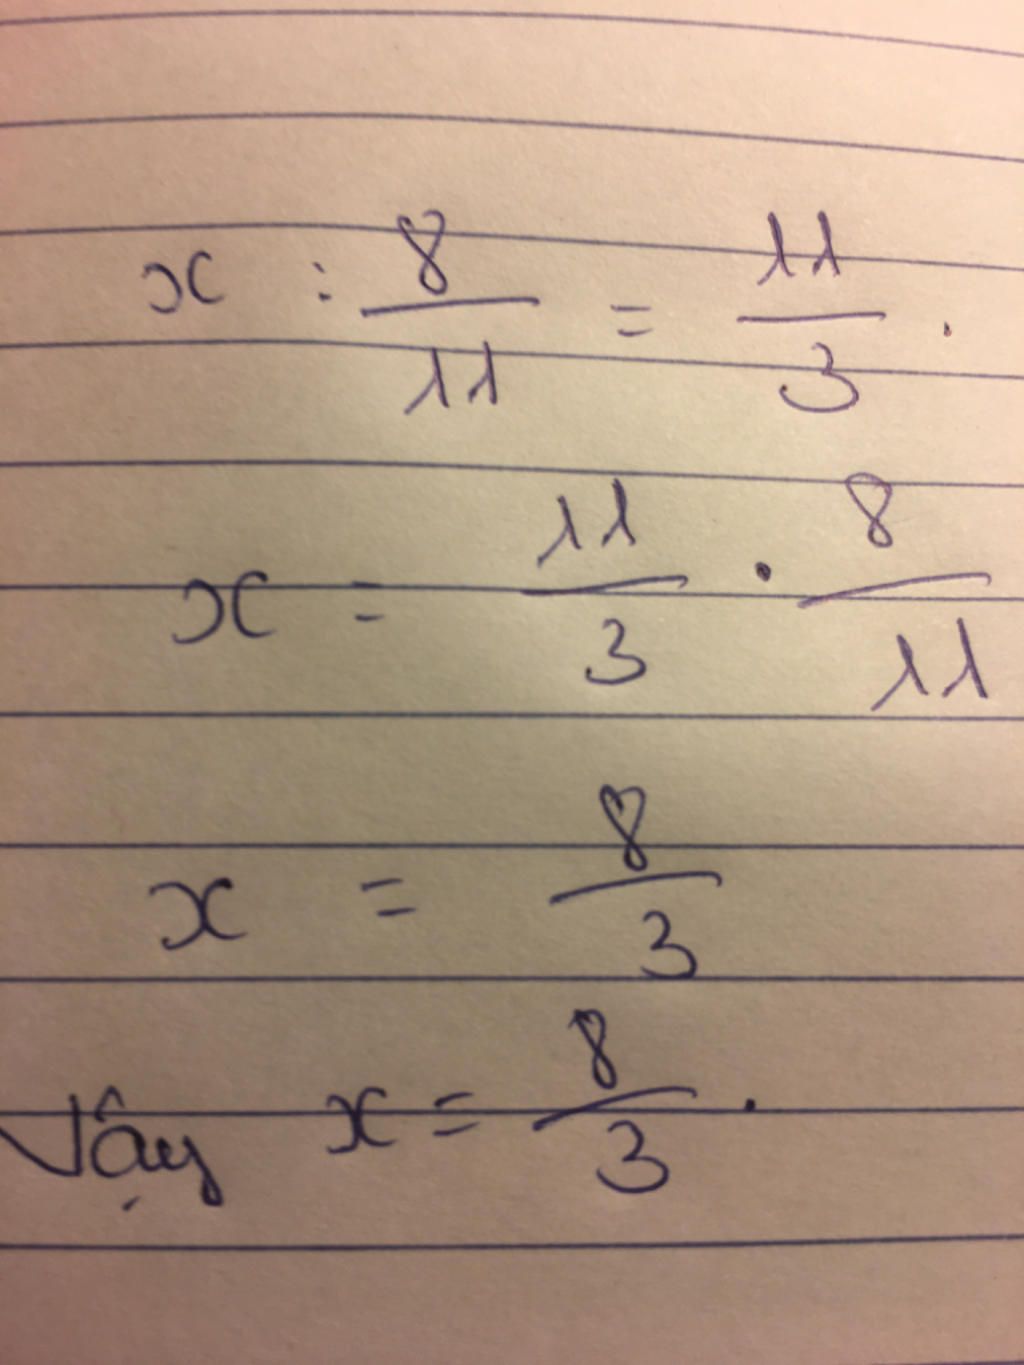 x : 8/11 = 11/3 .
x = 11/3 . 8/11
x = 8/3
Vậy x = 8/3 .